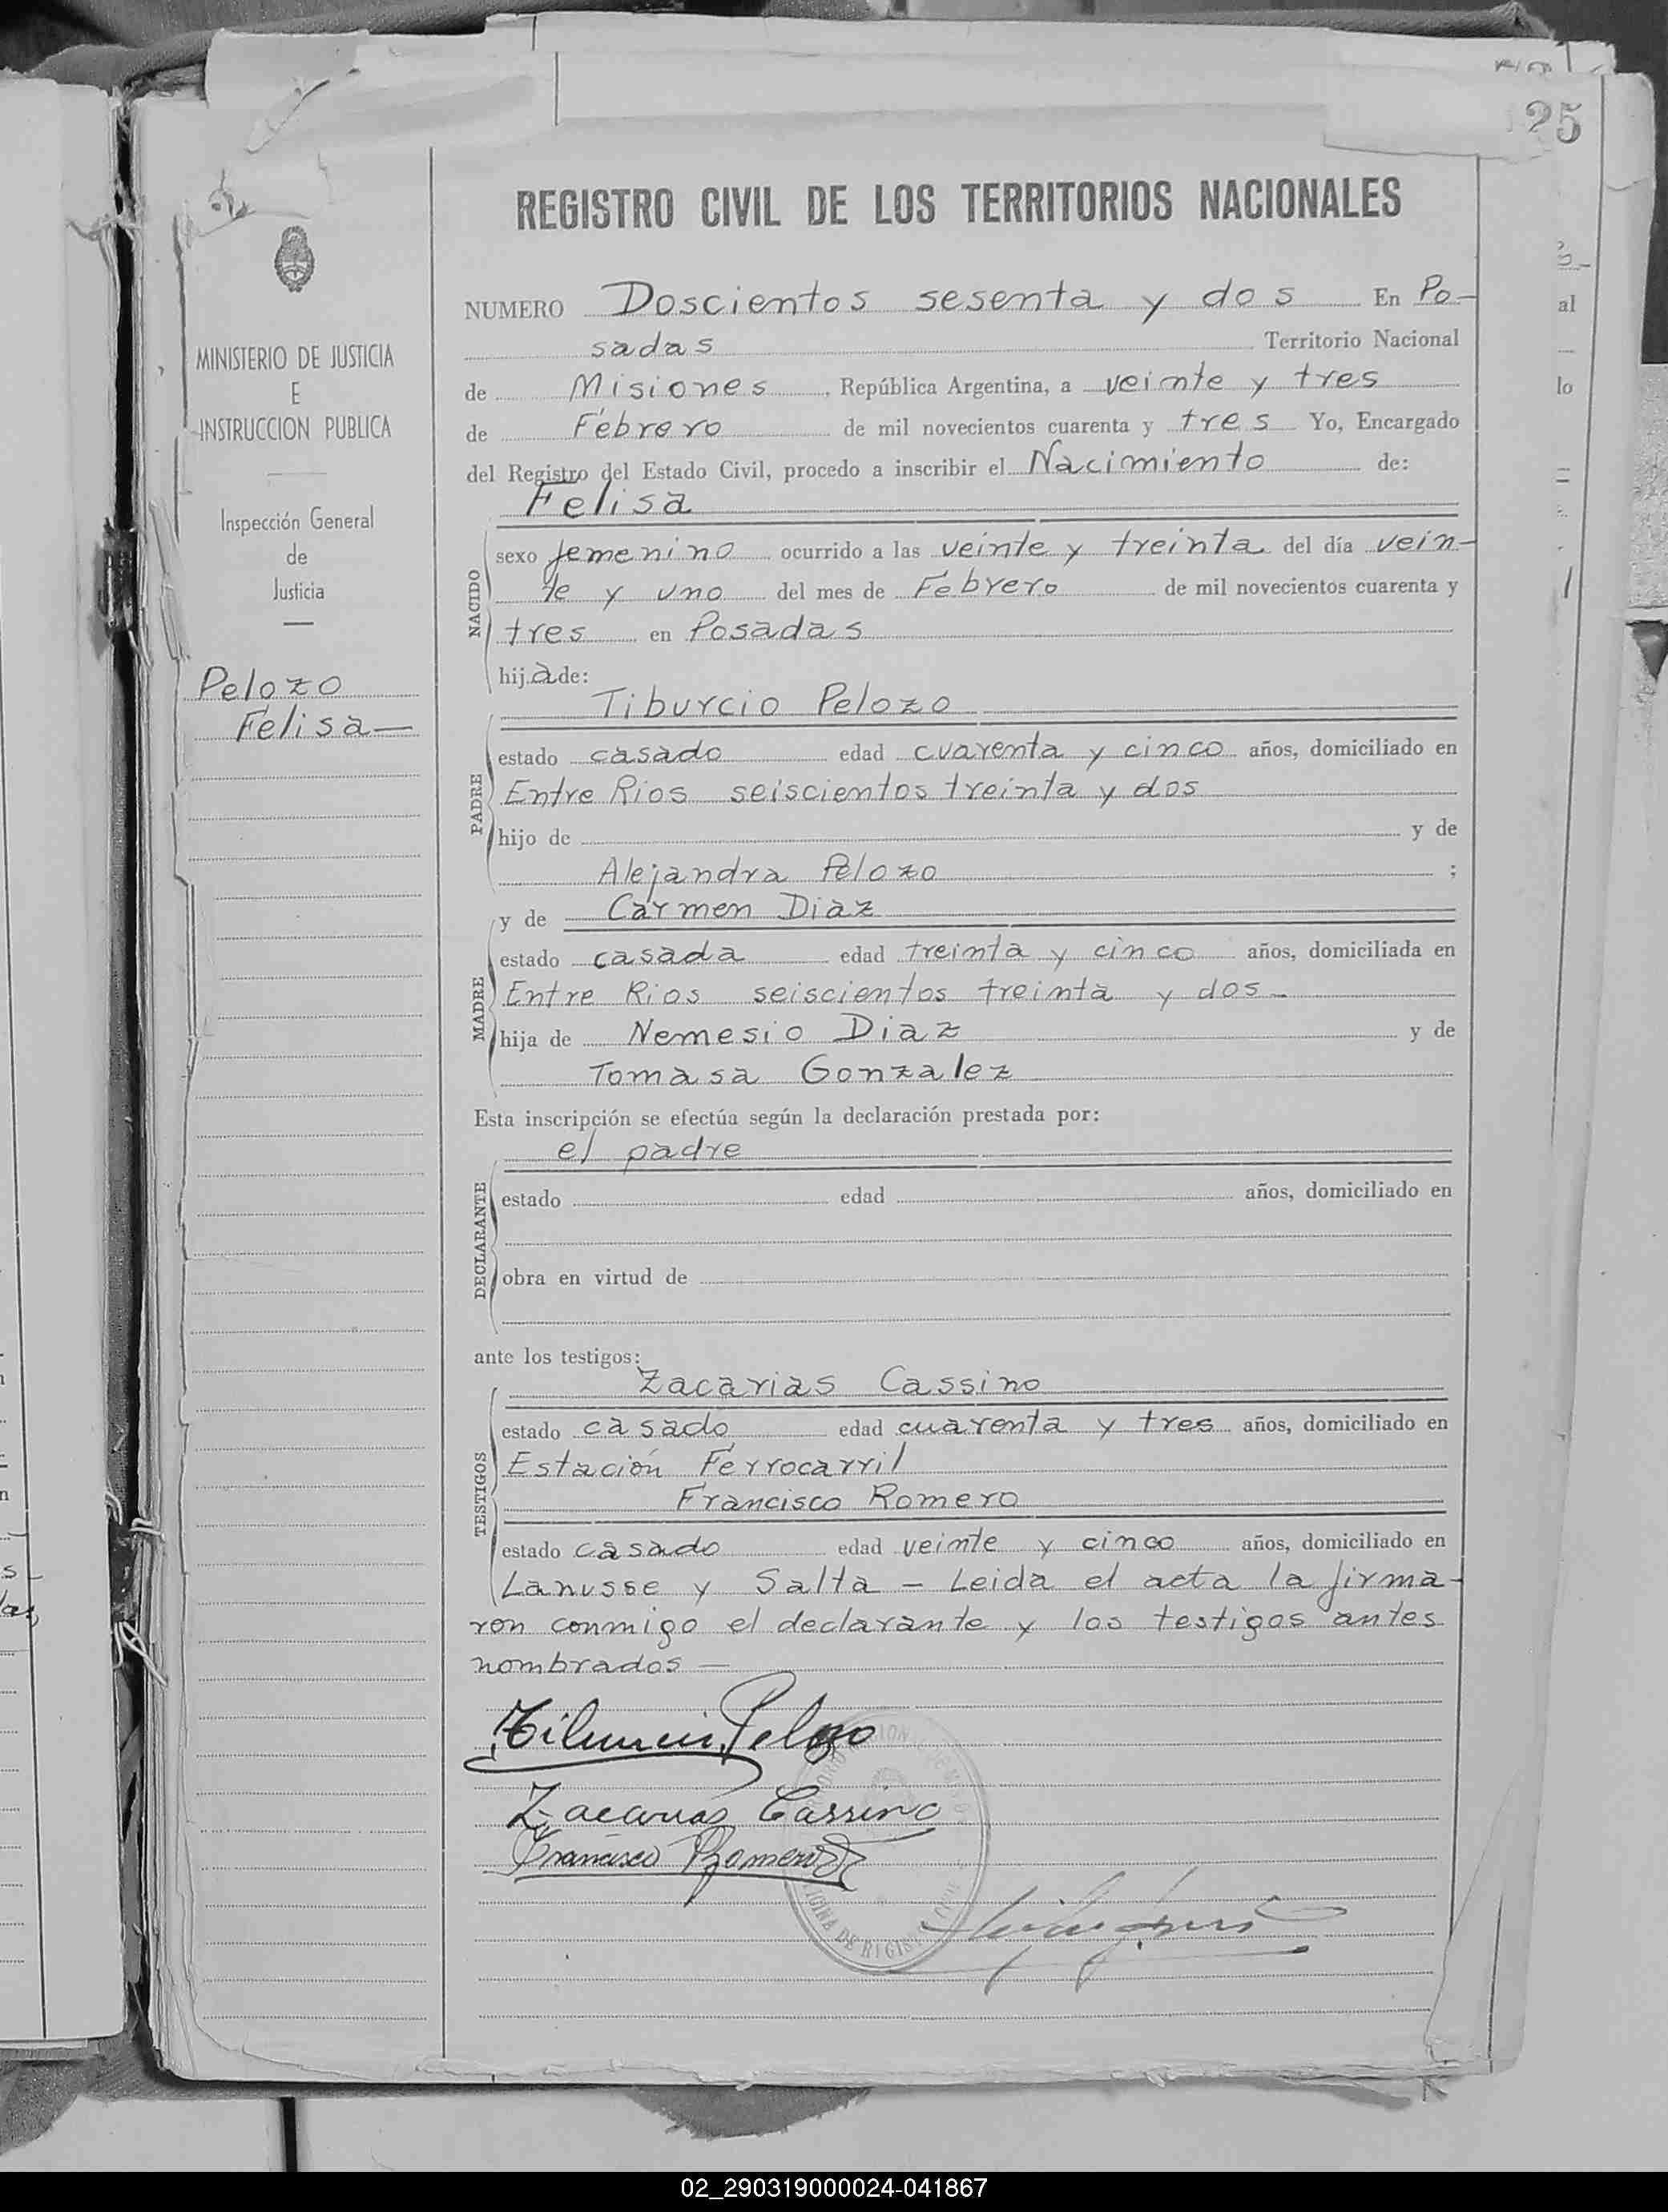 25
REGISTRO CIVIL DE LOS TERRITORIOS NACIONALES
MINISTERIO DE JUSTICIA
E
INSTRUCCION PUBLICA
Inspección General
de
Justicia
Pelozo
Felisa—
NUMERO Doscientos sesenta y dos En Po-
sadas Territorio Nacional
de Misiones, República Argentina, a veinte y tres
de Febrero de mil novecientos cuarenta y tres Yo, Encargado
del Registro del Estado Civil, procedo a inscribir el Nacimiento de:
Felisa
NACIDO
sexo femenino ocurrido a las veinte y treinta del día vein-
te y uno del mes de Febrero de mil novecientos cuarenta y
tres en Posadas
hij.a de:
Tiburcio Pelozo
PADRE
estado casado edad cuarenta y cinco años, domiciliado en
Entre Rios seiscientos treinta y dos
hijo de y de
Alejandra Pelozo ;
y de Carmen Diaz
MADRE
estado casada edad treinta y cinco años, domiciliada en
Entre Rios seiscientos treinta y dos-
hija de Nemesio Diaz y de
Tomasa Gonzalez
Esta inscripción se efectúa según la declaración prestada por:
el padre
DECLARANTE
estado edad años, domiciliado en
obra en virtud de
ante los testigos:
Zacarias Cassino
TESTIGOS
estado casado edad cuarenta y tres años, domiciliado en
Estación Ferrocarril
Francisco Romero
estado casado edad veinte y cinco años, domiciliado en
Lanusse y Salta - Leida el acta la firma-
ron conmigo el declarante y los testigos antes
nombrados —
Tiburcio Pelozo
Zacarias Cassino
Francisco Romero
02_290319000024-041867